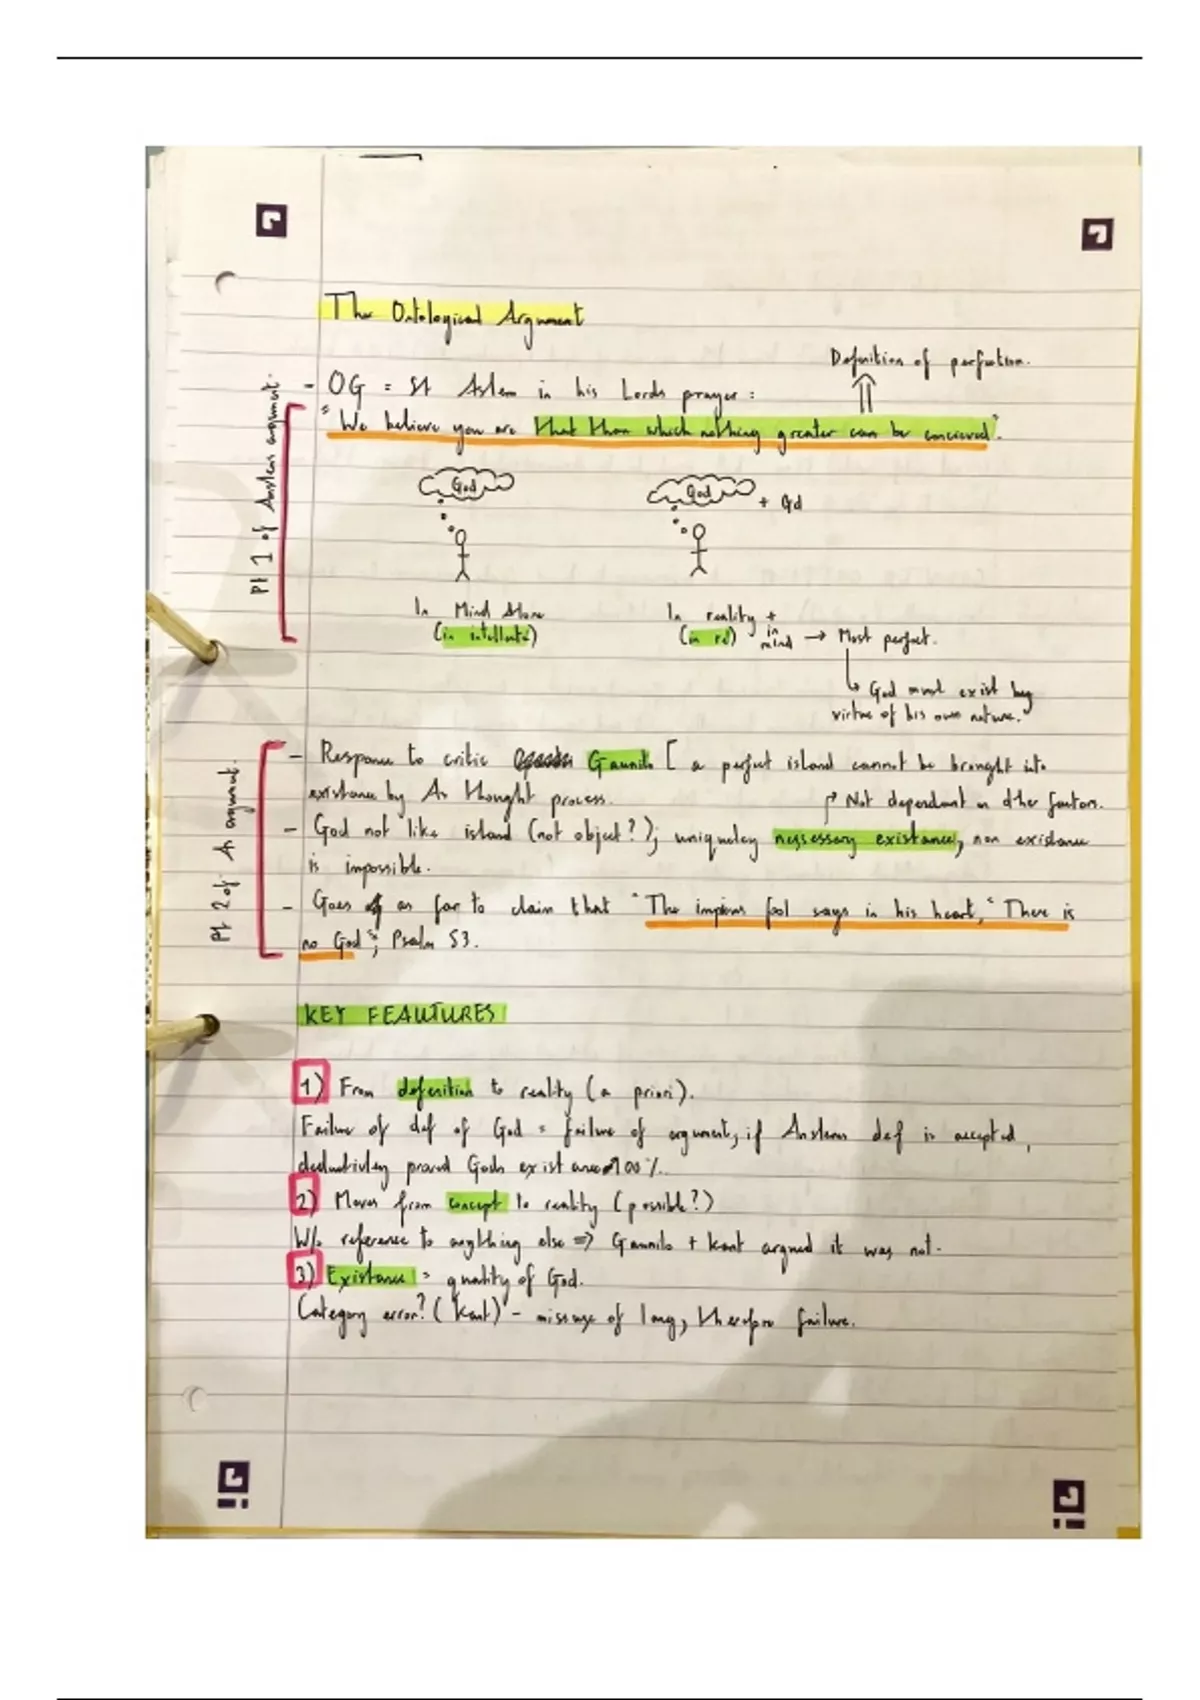 The Ontological Argument
Definition of perfection.
- OG = St Anslem in his Lords prayer :
"We believe you are that than which nothing greater can be concieved".
Pt 1 of Anslems argument.
God
God + God
In Mind Alone
(in intellectu)
In reality + in mind
(in re) → Most perfect.
↳ God must exist by
virtue of his own nature.
Pt 2 of A argument.
- Response to critic Gaunilo [ a perfect island cannot be brought into
existance by A's thought process.
↱ Not dependant on other factors.
- God not like island (not object?); uniqueley nessessary existance, non existance
is impossible.
- Goes as far to claim that "The impious fool says in his heart, "There is
no God"; Psalm 53.
KEY FEAUTURES
1) From defenition to reality (a priori).
Failure of def of God = failure of argument, if Anslems def is accepted,
deductivley proved Gods existance 100%.
2) Moves from concept to reality (possible?)
W/o reference to anything else => Gaunilo + Kant argued it was not.
3) Existance = quality of God.
Category error? (Kant) - missuse of lang, therefore failure.